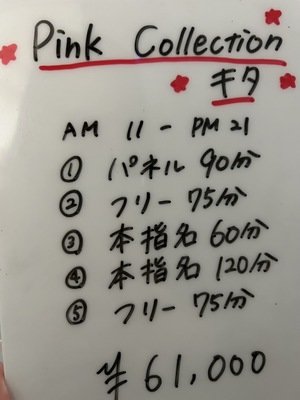 Pink Collection
キタ
AM 11 - PM 21
① パネル 90分
② フリー 75分
③ 本指名 60分
④ 本指名 120分
⑤ フリー 75分
¥61,000